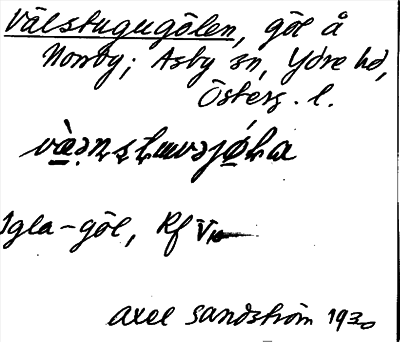 Vålstugugölen, göl å
Norrby; Asby sn, Ydre hd,
Österg. l.
Igla-göl, Rf V
Axel Sandström 1930